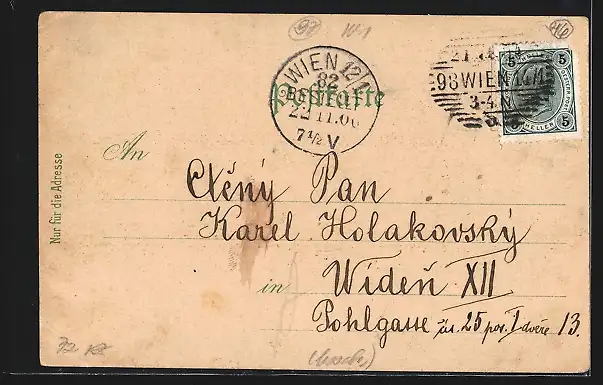 92
101
46
WIEN 12/1
82
22 11.00
7½ V
98 WIEN
3-4 N
5 5
HELLER
5 5
Postkarte
Nur für die Adresse
An
Ctěný Pan
Karel Holakovský
in Wídeň XII
Pohlgasse čís. 25 poř. I dveře 13.